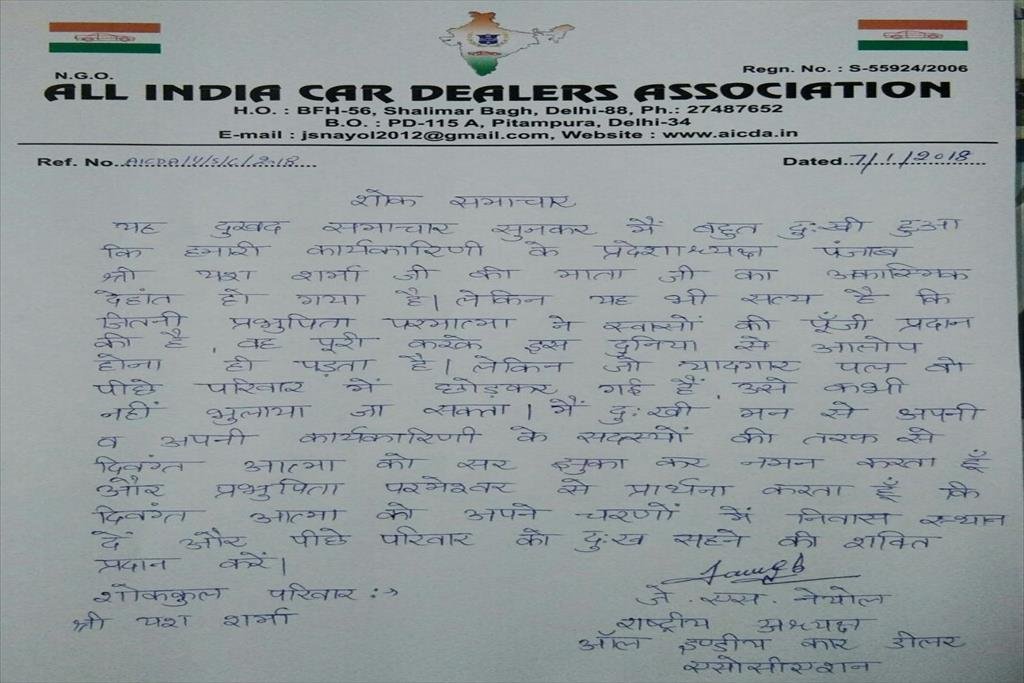 N.G.O.
Regn. No. : S-55924/2006
ALL INDIA CAR DEALERS ASSOCIATION
H.O. : BFH-56, Shalimar Bagh, Delhi-88, Ph.: 27487652
B.O. : PD-115 A, Pitampura, Delhi-34
E-mail : jsnayol2012@gmail.com, Website : www.aicda.in
Ref. No. AICDA/V/S/C/218 Dated 7/1/2018
शोक समाचार
यह दुखद समाचार सुनकर मैं बहुत दुःखी हुआ
कि हमारी कार्यकारिणी के प्रदेशाध्यक्ष पंजाब
श्री यश शर्मा जी की माता जी का अकास्मिक
देहांत हो गया है। लेकिन यह भी सत्य है कि
जितनी प्रभुपिता परमात्मा ने स्वासों की पूँजी प्रदान
की है, वह पूरी करके इस दुनिया से आलोप
होना ही पड़ता है। लेकिन जो यादगार पल वो
पीछे परिवार में छोड़कर गई हैं, उसे कभी
नहीं भुलाया जा सक्ता। मैं दुःखी मन से अपनी
व अपनी कार्यकारिणी के सदस्यों की तरफ से
दिवंगत आत्मा को सर झुका कर नमन करता हूँ
और प्रभुपिता परमेश्वर से प्रार्थना करता हूँ कि
दिवंगत आत्मा को अपने चरणों में निवास स्थान
दें और पीछे परिवार को दुःख सहने की शक्ति
प्रदान करें।
शोककुल परिवार :→
श्री यश शर्मा
जे. एस. नेयोल
राष्ट्रीय अध्यक्ष
ऑल इण्डीय कार डीलर
एसोसीएशन